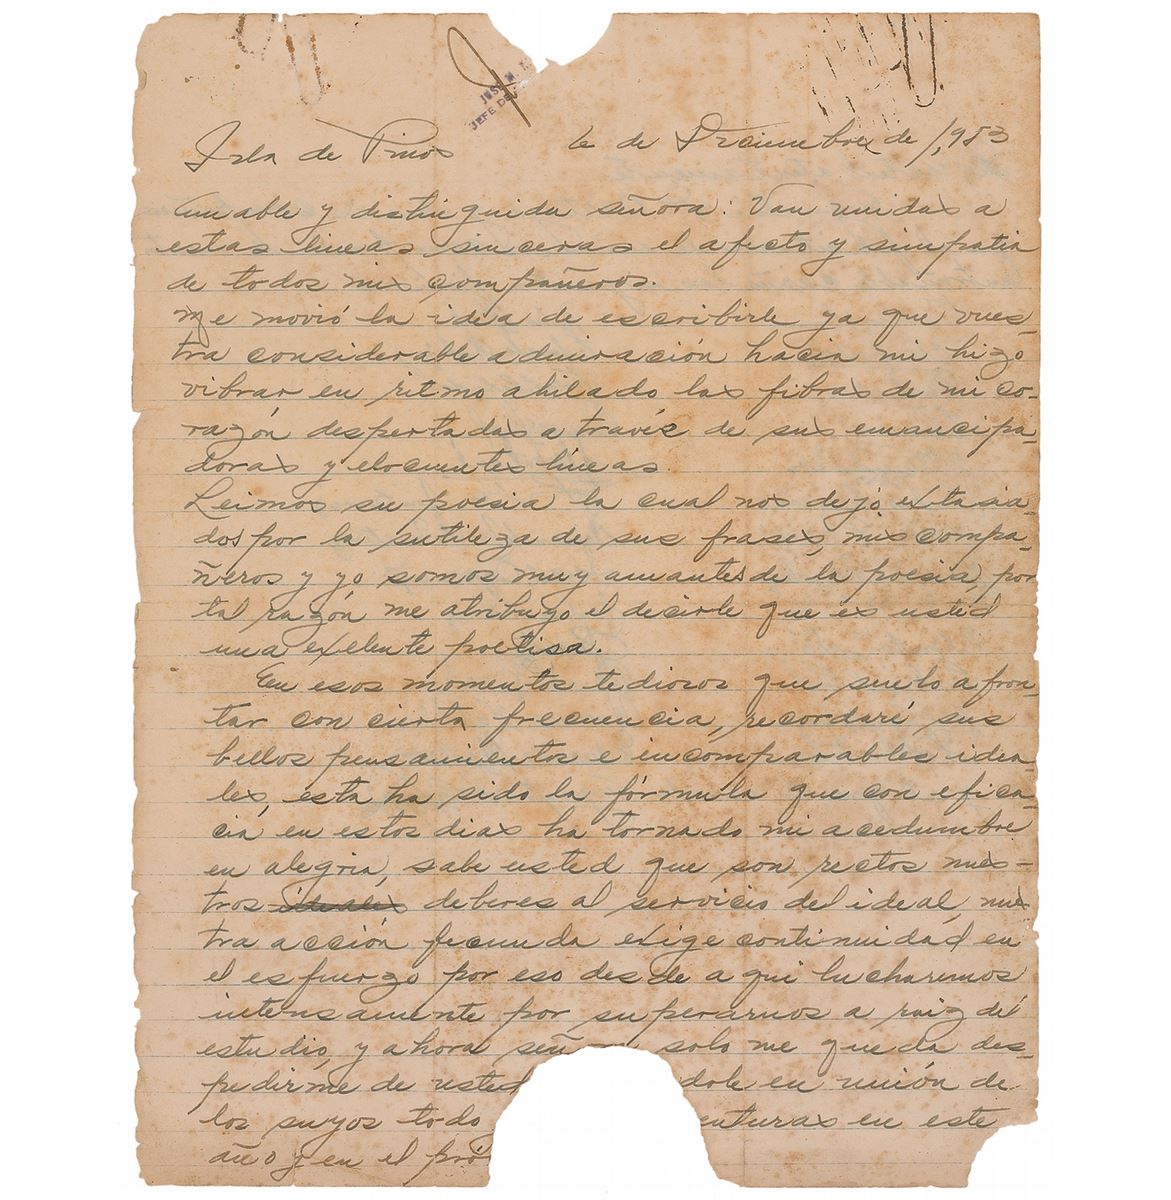 JOSE M.
JEFE DE
Isla de Pinos 6 de Diciembre de 1,953
Amable y distinguida señora: Van unidas a
estas lineas sinceras el afecto y simpatia
de todos mis compañeros.
Me movió la idea de escribirle ya que vues-
tra considerable admiración hacia mi hizo
vibrar en ritmo ahilado las fibras de mi co-
razón despertadas a través de sus emancipa-
doras y elocuentes líneas.
Leimos su poesia la cual nos dejo extasia-
dos por la sutileza de sus frases, mis compa-
ñeros y yo somos muy amantes de la poesia, por
tal razón me atribuyo el decirle que es usted
una exelente poetisa.
En esos momentos tediosos que suelo afron-
tar con cierta frecuencia, recordaré sus
bellos pensamientos e incomparables idea-
les, esta ha sido la fórmula que con efica-
cia, en estos dias ha tornado mi acedumbre
en alegria, sabe usted que son rectos nues-
tros ideales deberes al servicio del ideal, nues
tra acción fecunda exige continuidad en
el esfuerzo por eso desde aqui lucharemos
intensamente por superarnos a raiz del
estudio, y ahora señ solo me queda des-
pedirme de usted dole en unión de
los suyos todo enturas en este
año y en el pró